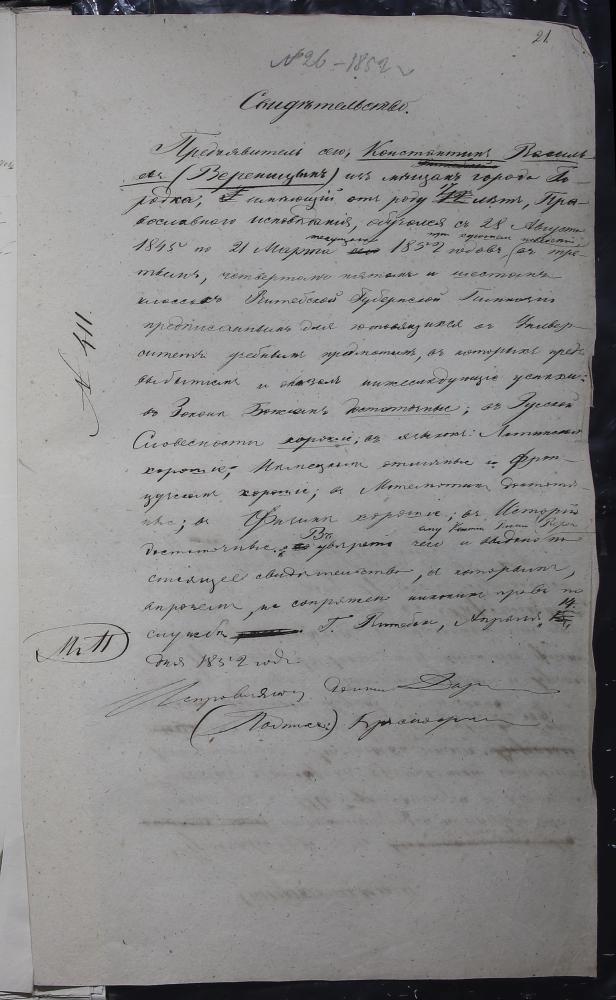 21.
№ 26 – 1852
Свидѣтельство.
Предъявитель сего, Константинъ Василь-
евъ (Вереницынъ) изъ мѣщанъ города Го-
родка, имѣющій отъ роду 17 лѣтъ, Пра-
вославнаго исповѣданія, обучался съ 28 Августа
1845 по 21 Марта текущаго 1852 годовъ, при отличномъ поведеніи, въ тре-
тьемъ, четвертомъ пятомъ и шестомъ
классахъ Витебской Губернской Гимназіи
предписаннымъ для готовящихся въ Универ-
ситетъ учебнымъ предметамъ, въ которыхъ предъ
выбытіемъ и оказалъ нижеслѣдующіе успѣхи:
въ Законѣ Божіемъ достаточные; въ Русской
Словесности хорошіе; въ языкахъ: Латинскомъ
хорошіе; Нѣмецкомъ отличные и Фран-
цузскомъ хорошіе; въ Математикѣ достаточ-
ные; въ Физикѣ хорошіе; въ Исторіи
достаточные. Въ увѣреніе чего и выдано ему на-
стоящее свидѣтельство, съ которымъ,
впрочемъ, не сопряжено никакихъ правъ по
службѣ. Г. Витебскъ, Апрѣля 14
дня 1852 года.
№ 411.
М. П.
Исправляющій долж. Дир
(Подпись:)